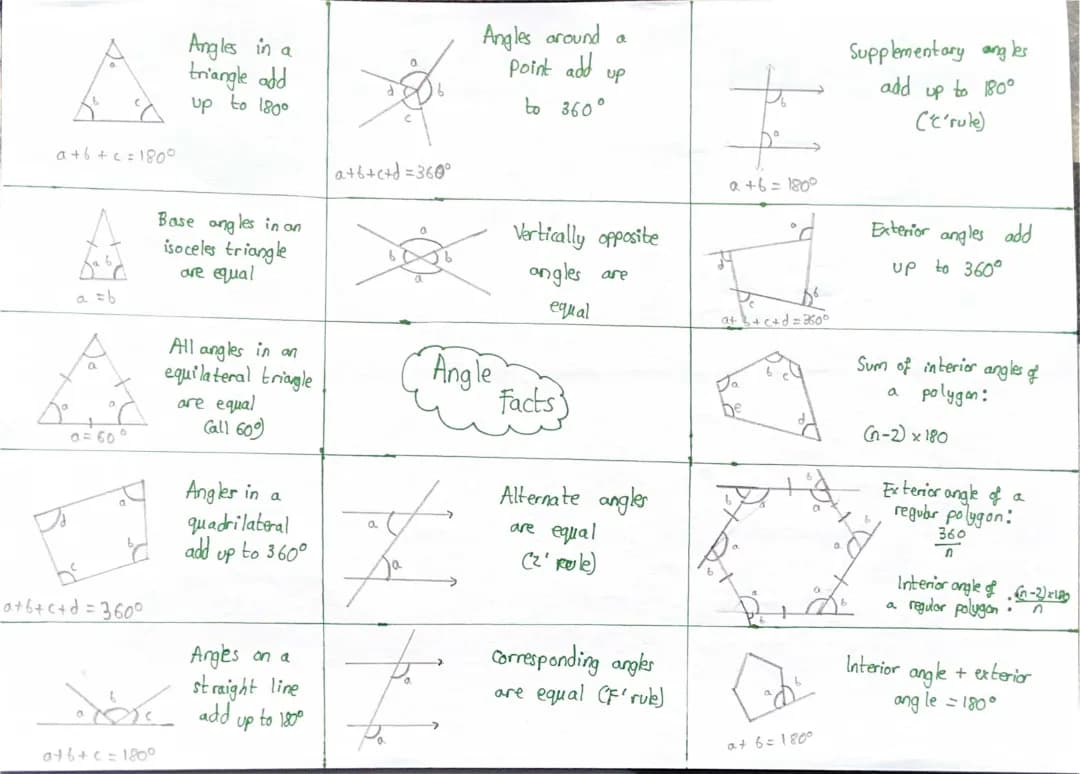 Angles in a
triangle add
up to 180°
a
b
c
a+b+c=180°
Angles around a
point add up
to 360°
a
d
b
c
a+b+c+d=360°
Supplementary angles
add up to 180°
('C' rule)
b
a
a+b=180°
Base angles in an
isoceles triangle
are equal
a b
a=b
Vertically opposite
angles are
equal
a
b b
a
Exterior angles add
up to 360°
a
d
c
b
a+b+c+d=360°
All angles in an
equilateral triangle
are equal
(all 60°)
a
a a
a=60°
Angle
Facts
Sum of interior angles of
a polygon:
(n-2)×180
b c
a
e
d
Angles in a
quadrilateral
add up to 360°
a
d
b
c
a+b+c+d=360°
Alternate angles
are equal
('Z' rule)
a
a
Exterior angle of a
regular polygon:
360
n
Interior angle of
a regular polygon: (n-2)×180
n
b
b a a b
b a a
a a b
b
Angles on a
straight line
add up to 180°
b
a c
a+b+c=180°
Corresponding angles
are equal ('F' rule)
a
a
Interior angle + exterior
angle = 180°
b
a
a+b=180°